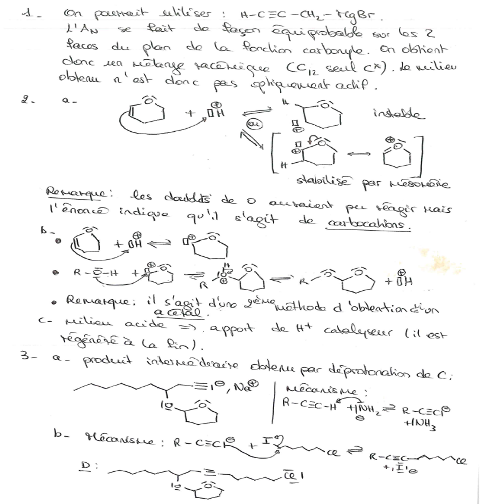 1. On pourrait utiliser : H-C≡C-CH₂-MgBr.
L'AN se fait de façon équiprobable sur les 2
faces du plan de la fonction carbonyle. On obtient
donc un mélange racémique (C12 seul C*). Le milieu
obtenu n'est donc pas optiquement actif.
2- a- + H⊕ ⇌ instable
ou
↔
stabilisé par mésomérie
Remarque : les doublets de O auraient pu réagir mais
l'énoncé indique qu'il s'agit de carbocations.
b-
• + H⊕ ⇌
• R-O-H + ⇌ ⇌ R-O + H⊕
• Remarque : il s'agit d'une 2ème méthode d'obtention d'un
acétal.
c- Milieu acide => apport de H+ catalyseur (il est
régénéré à la fin).
3- a- produit intermédiaire obtenu par déprotonation de C :
≡⊖, Na⊕
Mécanisme :
R-C≡C-H + NH₂⊖ ⇌ R-C≡C⊖
+ NH₃
b- Mécanisme : R-C≡C⊖ + I Cl ⇌ R-C≡C Cl
+ I⊖
D : Cl